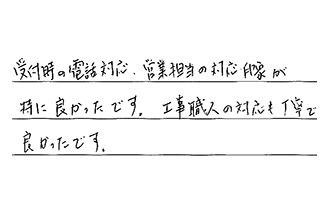 受付時の電話対応、営業担当の対応印象が
特に良かったです。工事職人の対応も丁寧で
良かったです。